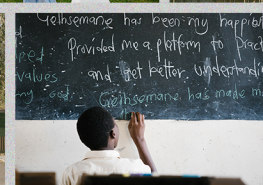 Gethsemane has been my happies
Provided me a platform to Pract
and get better understandin
values
my God.
Gethsemane has made m